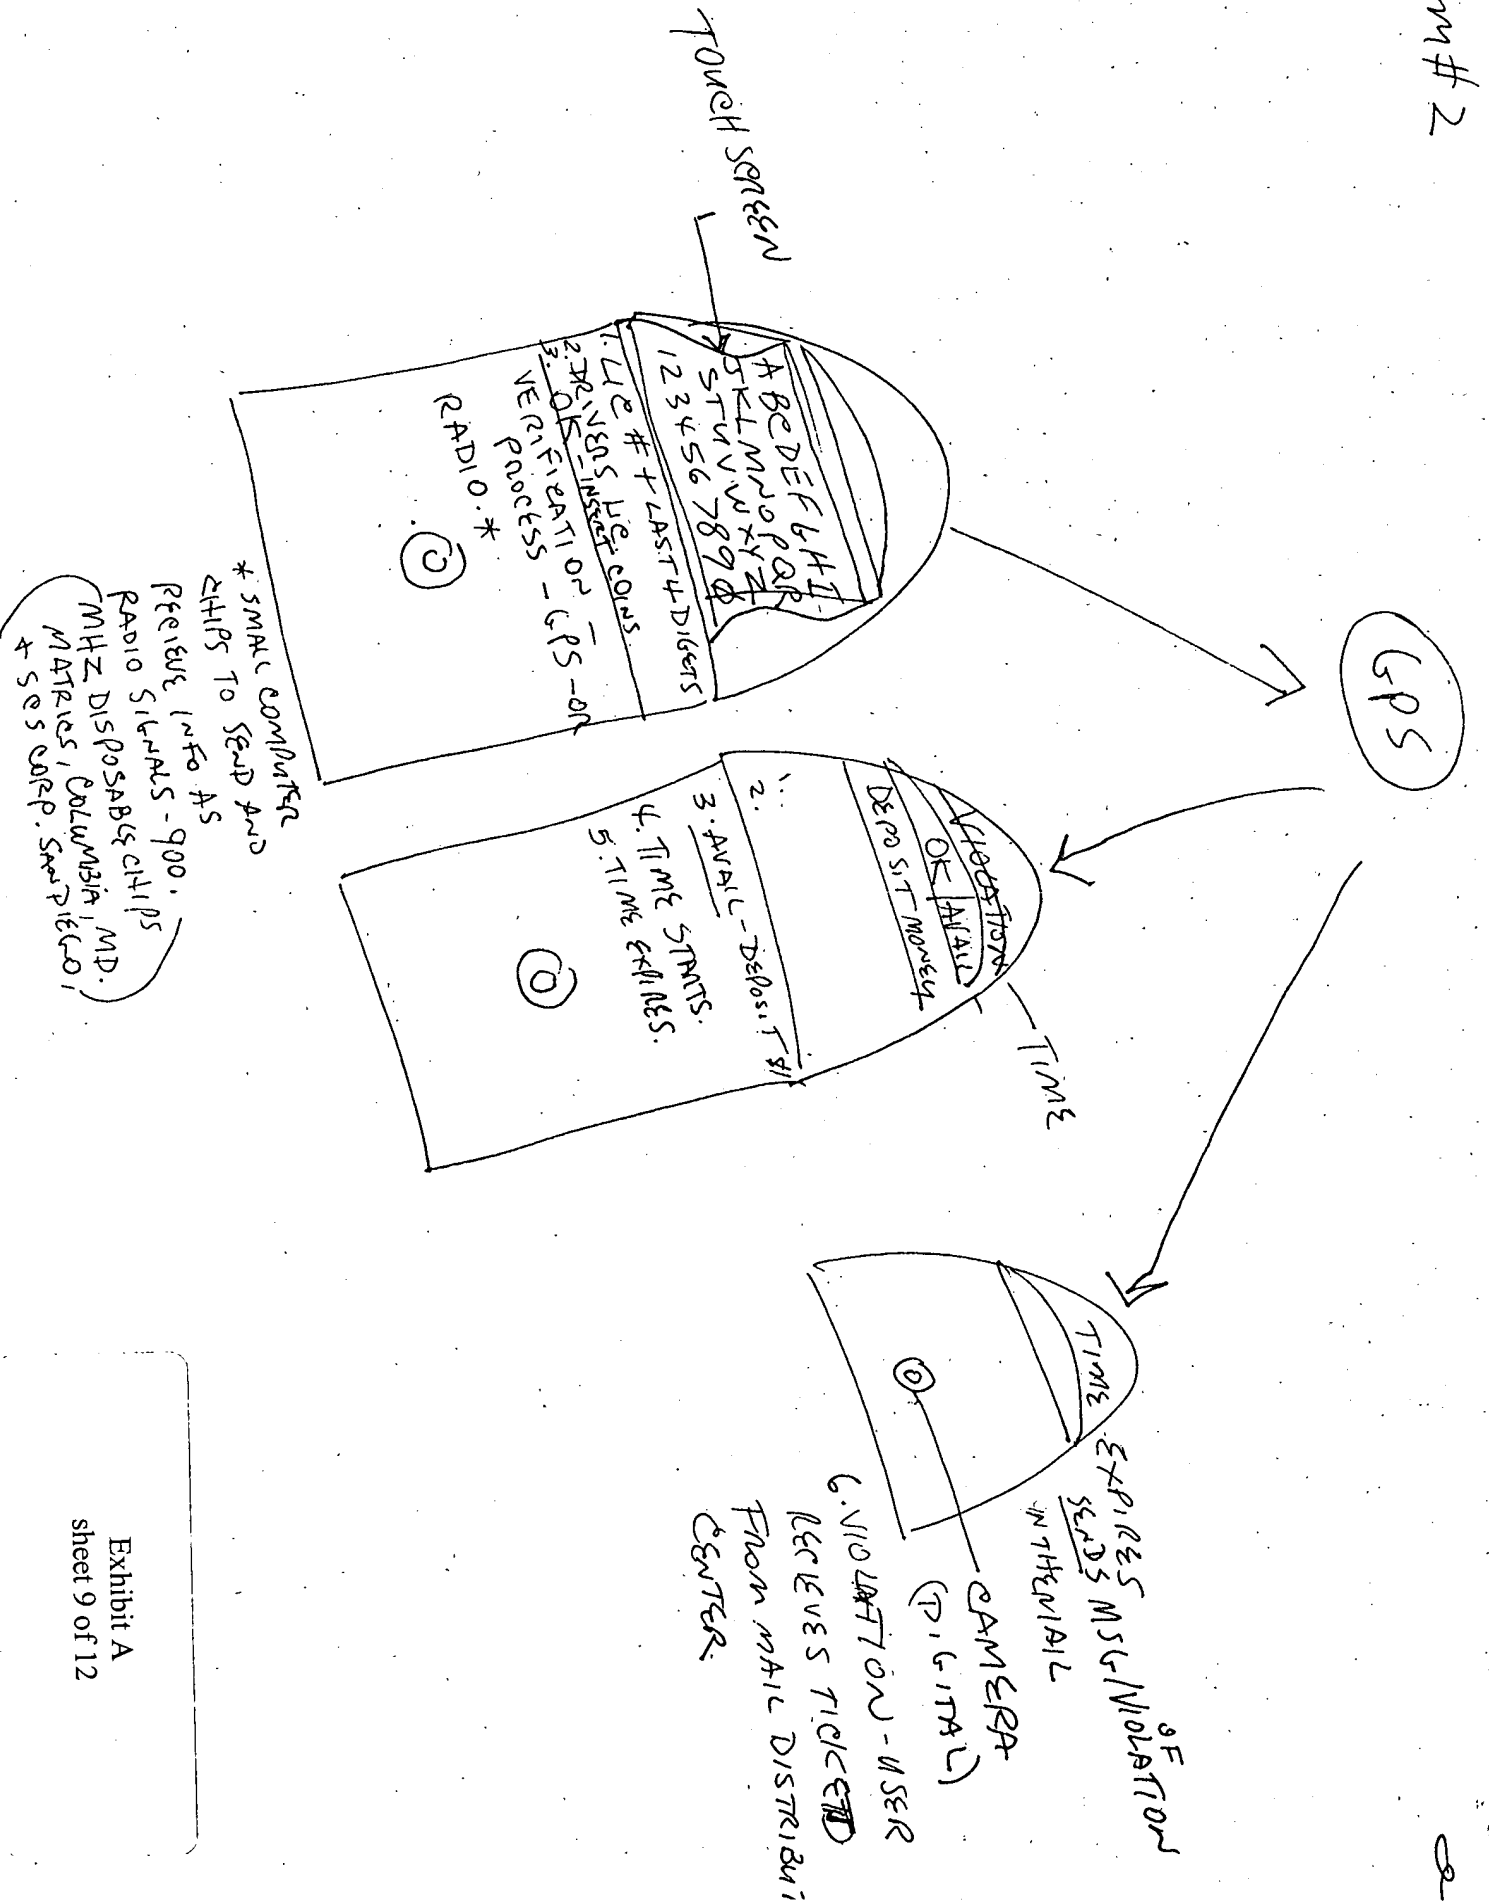 m# 2
GPS
TOUCH SCREEN
A B C D E F G H I
J K L M N O P Q R
S T U V W X Y Z
1 2 3 4 5 6 7 8 9 0
1. LIC # + LAST 4 DIGETS
2. DRIVERS LIC.
3. OK - INSERT COINS
VERIFICATION -
PROCESS - GPS - OR
RADIO. *
* SMALL COMPUTER
CHIPS TO SEND AND
RECIEVE INFO AS
RADIO SIGNALS - 900.
MHZ DISPOSABLE CHIPS
MATRICS, COLUMBIA, MD.
+ SCS CORP. SAN DIEGO,
VIOLATION
OK / AVAIL
DEPOSIT MONEY
TIME
1.
2.
3. AVAIL - DEPOSIT $
4. TIME STARTS.
5. TIME EXPIRES.
TIME EXPIRES
SENDS MSG/VIOLATION
OF
IN THE MAIL
CAMERA
(DIGITAL)
6. VIOLATION - USER
RECIEVES TICKET
FROM MAIL DISTRIBUT
CENTER.
Exhibit A
sheet 9 of 12